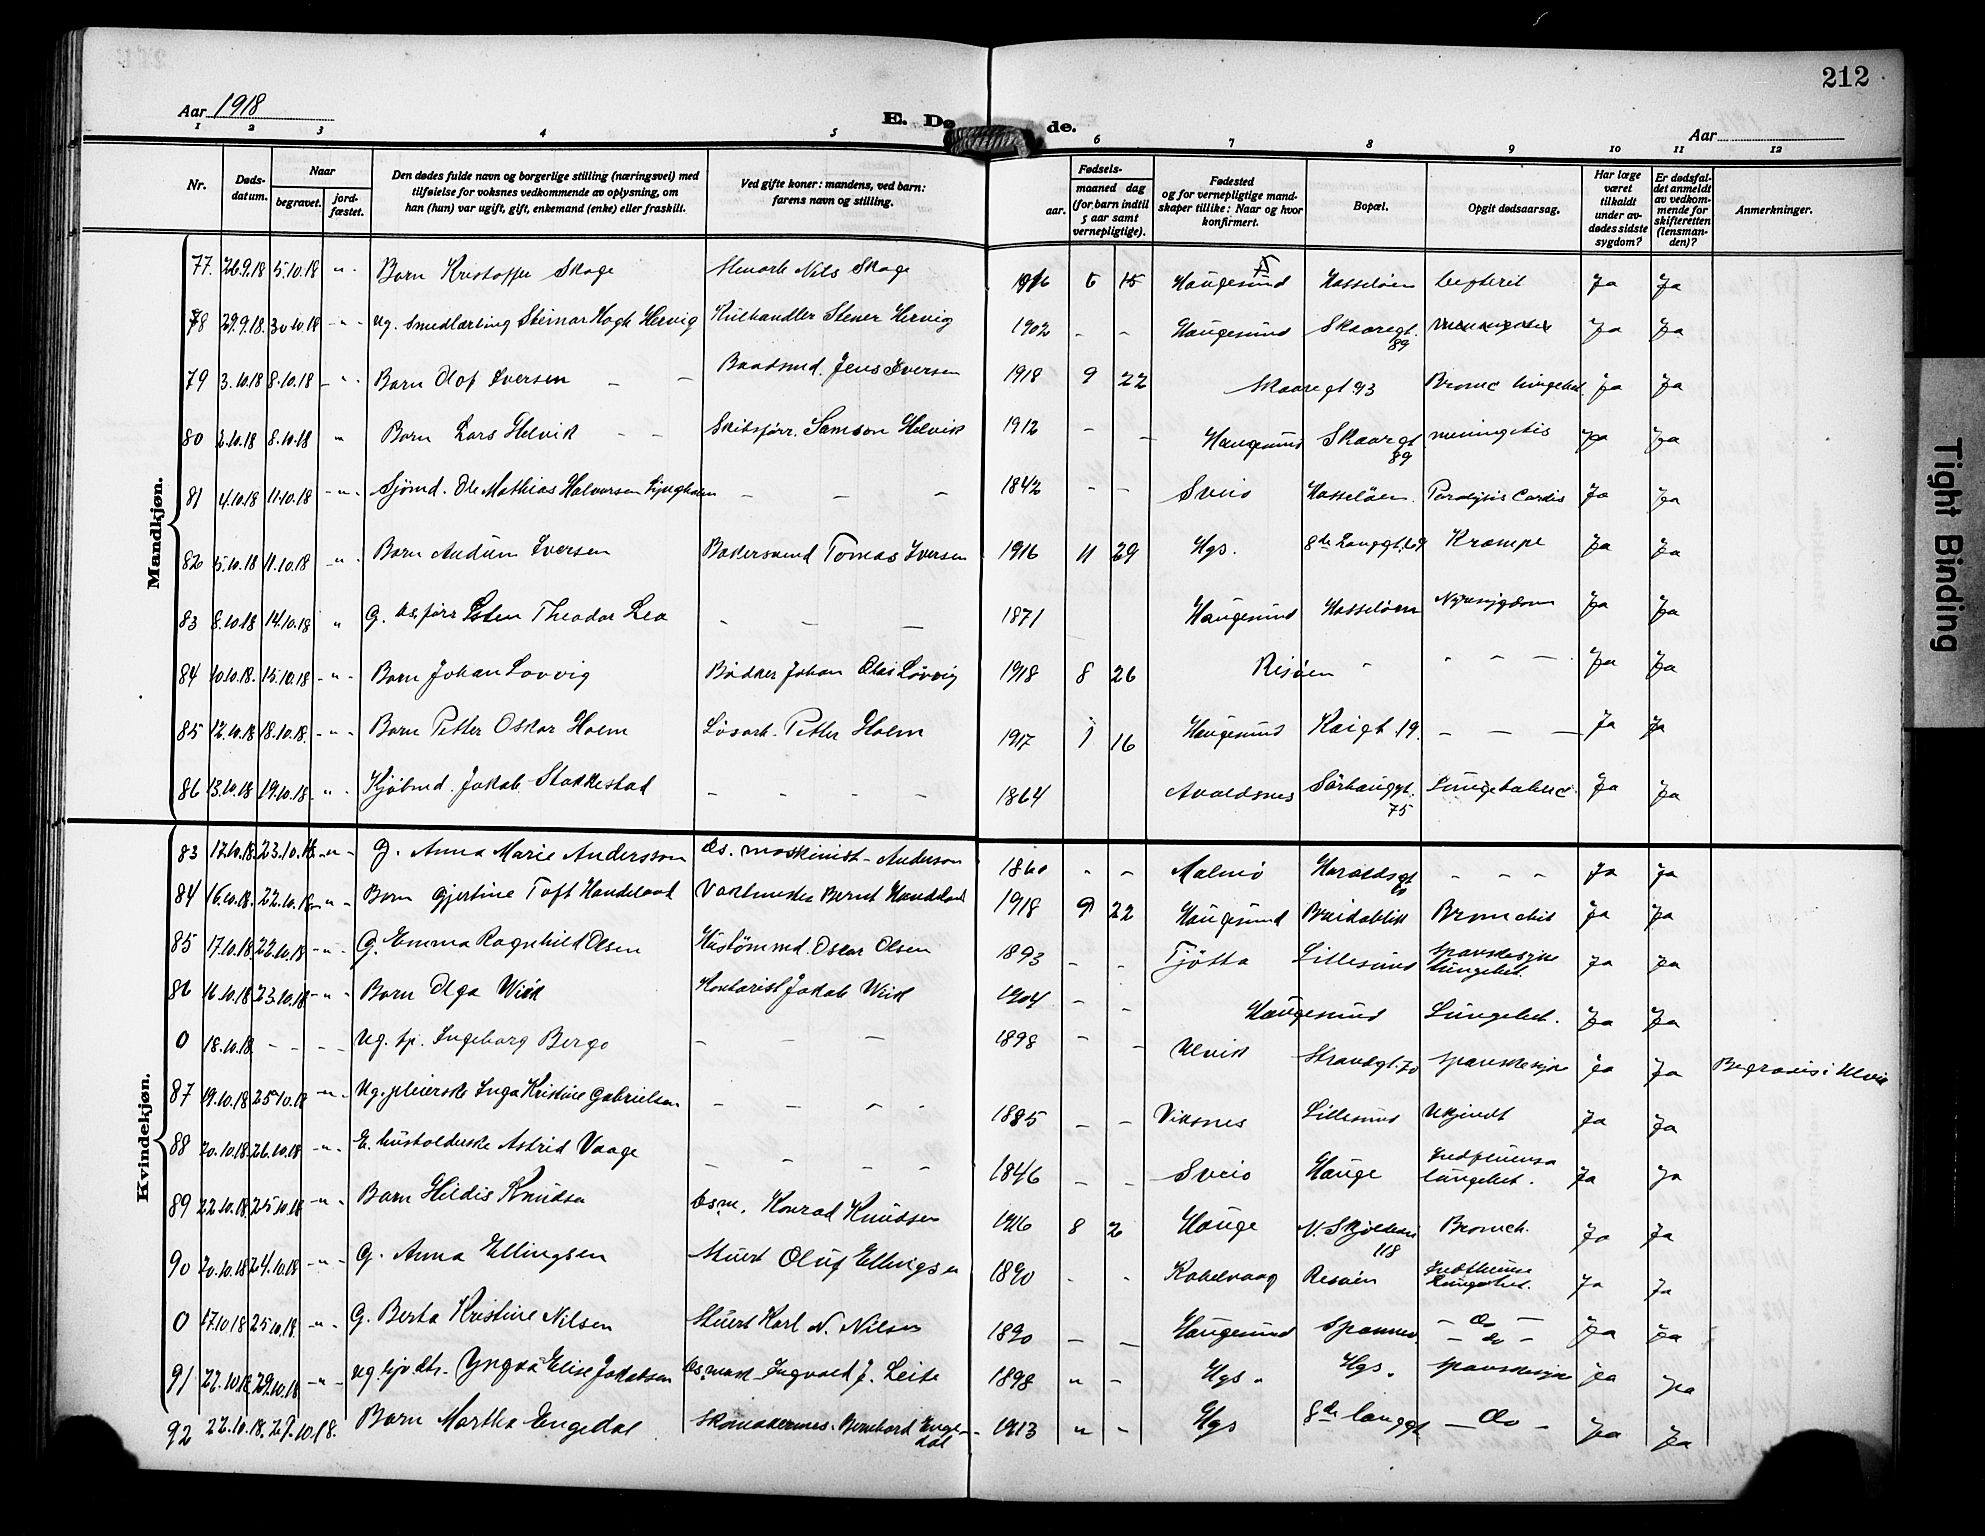 212
Aar 1918
E. Dø de.
Aar
1 2 3 4 5 6 7 8 9 10 11 12
Nr.
Døds-
datum.
Naar
begravet.
jord-
fæstet.
Den dødes fulde navn og borgerlige stilling (næringsvei) med
tilføielse for voksnes vedkommende av oplysning, om
han (hun) var ugift, gift, enkemand (enke) eller fraskilt.
Ved gifte koner: mandens, ved barn:
farens navn og stilling.
Fødsels-
aar.
maaned dag
(for barn indtil
5 aar samt
vernepligtige).
Fødested
og for vernepligtige mand-
skaper tillike: Naar og hvor
konfirmert.
Bopæl.
Opgit dødsaarsag.
Har læge
været
tilkaldt
under av-
dødes sidste
sygdom?
Er dødsfal-
det anmeldt
av vedkom-
mende for
skifteretten
(lensman-
den)?
Anmerkninger.
Mandkjøn.
77. 26.9.18 5.10.18 " Barn Kristoffer Skage Nils Skage 1916 5 15 Haugesund Hasseløen Ja Ja
78 29.9.18. 30.10.18 - " - Ug. Smedlærling Steinar Hervig Kulhandler Stener Hervig 1902 - - Haugesund Skaaregt. 89 Ja Ja
79 3.10.18 8.10.18 - " - Barn Olof Iversen - - Baadsmd. Jens Iversen 1918 9 22 Skaaregt 93 Bronc. lungebet. Ja Ja
80 2.10.18 8.10.18 " Barn Lars Helvik - - Skibsförr. Samson Helvik 1912 - - Haugesund Skaaregt 89 meningitis Ja Ja
81 4.10.18 11.10.18 - " - Sjömd. Ole Mathias Halvorsen Lyngholm - - - 1842 - - Sveio Hasseløen. Paralysis Cordis Ja Ja
82 5.10.18 11.10.18 - " - Barn Audun Iversen Bakersvend Tomas Iversen 1916 11 29 Hgs. Krampe Ja Ja
83 8.10.18 14.10.18 " G. Ds.förr Theodor Lea - - - 1871 Haugesund Hasseløen Nyresygdom Ja Ja
84 10.10.18. 15.10.18 - " - Barn Johan Lovvig Bödker Johan Olai Lövvig 1918 8 26 Risøen " " - - Ja Ja
85 12.10.18 18.10.18. - " - Barn Petter Oskar Holm Løsarb. Petter Holm 1917 1 16 Haugesund Kaigt. 19. - - - Ja Ja
86 13.10.18 19.10.18. " Kjöbmd. Jakob Stakkestad - - - - 1864 Avaldsnes Sörhauggt. 75 Ja Ja
Kvindekjøn.
83 17.10.18. 23.10.18 - " - G. Anna Marie Andersson Ds. maskinist - Anderson 1860 - - Malmö Haraldsgt - - - Ja Ja
84 16.10.18. 22.10.18 - " - Barn Gjertine Toft Handeland Vaktmester Bernt Handeland 1918 9 22 Haugesund Breidablik Bronchit Ja Ja
85 17.10.18. 22.10.18 - " - G. Emma Ragnhild Olsen Oscar Olsen 1893 - - Tjötta Lillesund Spanskesyke lungebet. Ja Ja
86 16.10.18 23.10.18 - " - Barn Olga Wiik Kontorist Jakob Wiik 1904 - - Haugesund Lungebet. Ja Ja
0 18.10.18. - - - - Ug. tp. Ingeborg Bergo - - - 1898 - - Ulvik Strandgt. 70 Spanskesyke Ja Ja Begraves i Ulvik
87 19.10.18 25.10.18 - " - Ug. pleierske Inga Kristine Gabrielsen - - - - 1885 - - Viksnes Lillesund Ukjendt Ja Ja
88 20.10.18. 26.10.18 - " - E. husholderske Astrid Vaage - - - - 1846 - - Sveio Hauge Indfluensa lungebet. Ja Ja
89 22.10.18. 25.10.18 - " - Barn Hildis Knudsen Dsm. Konrad Knudsen 1916 8 2 Hauge 118 Bronch. Ja Ja
90 20.10.18 24.10.18 - " - G. Anna Ellingsen Stuert Oluf Ellingsen 1890 - - Kabelvaag Risøen Indfluensa lungebet. Ja Ja
0 17.10.18 25.10.18 - " - G. Berta Kristine Nilsen Stuert Karl N. Nilsen 1890 - - Haugesund Spannev. - Do - - do - Ja Ja
91 22.10.18 29.10.18 - " - Ug. Yngva Elise Jakobsen Ds.mask. Ingvald J. Leite 1898 " - Hgs. Hgs. Spanskesyke Ja Ja
92 22.10.18. 29.10.18. Barn Martha Engedal Skomakermes. Bernhard Engedal 1913 " - Hgs 8de langgt. - Do - Ja Ja
Tight Binding